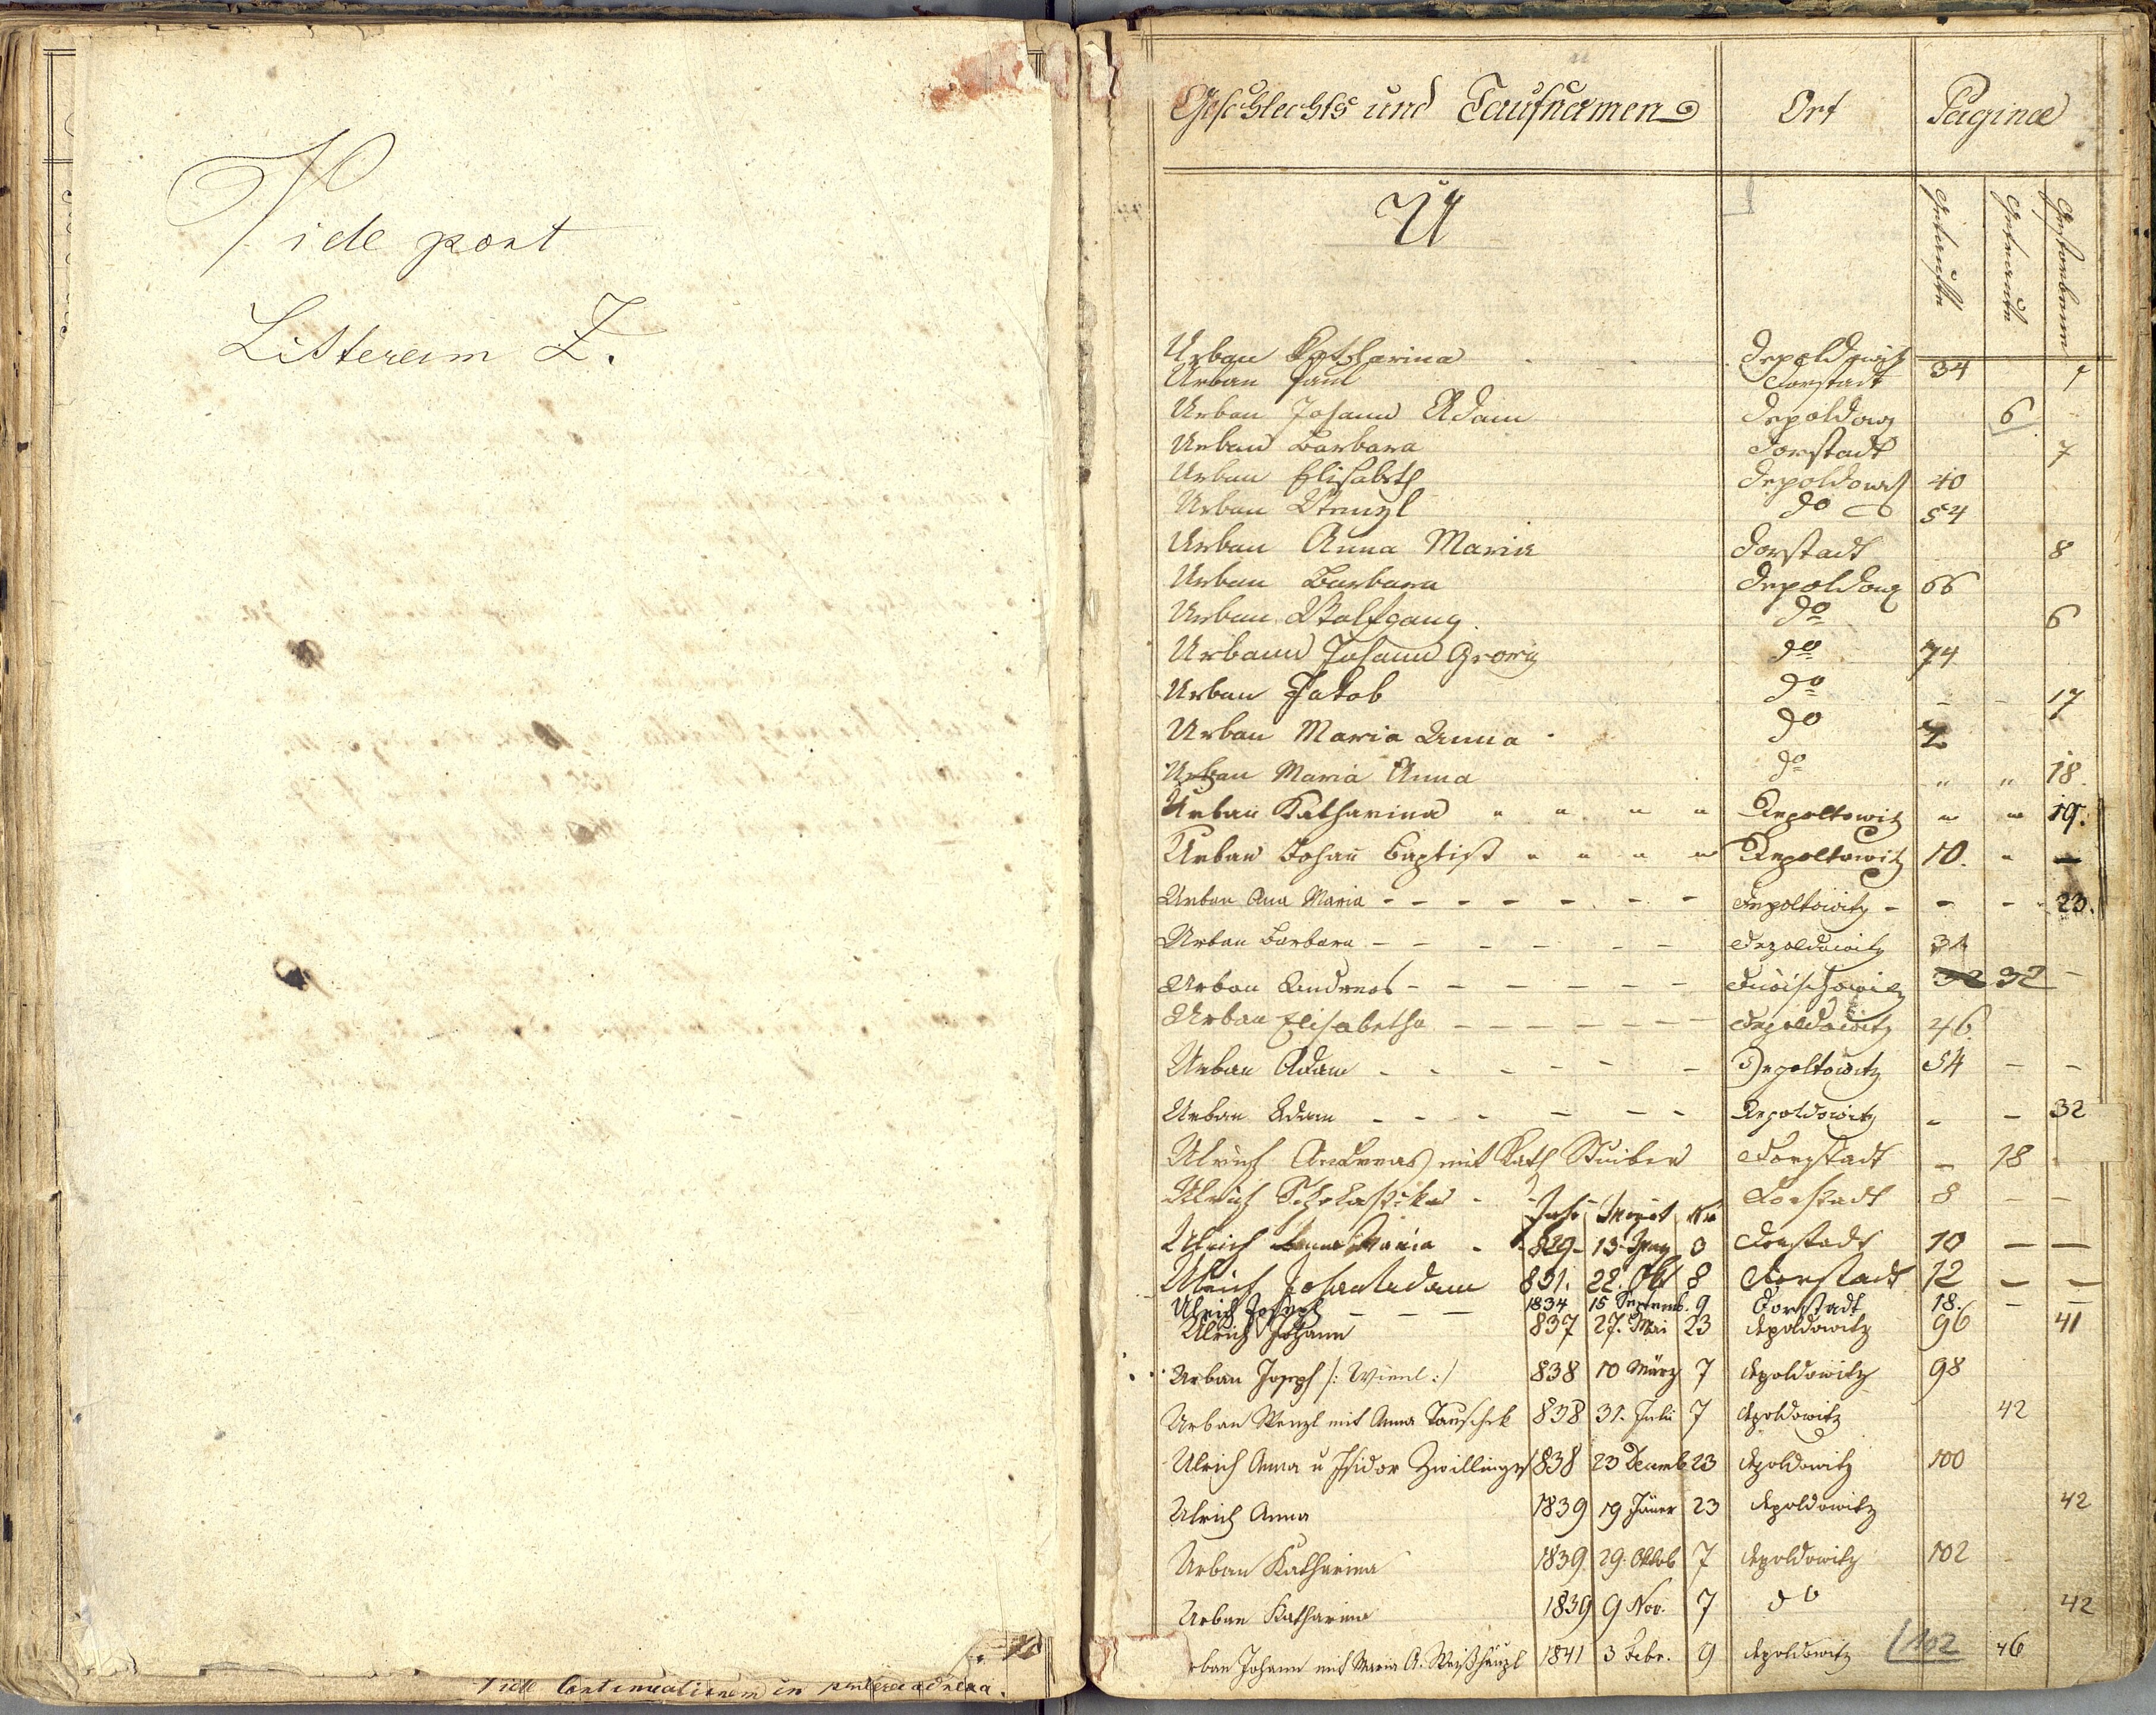 Vide post
Litteram Z.
Vide Continuationem in
Geschlechts und Taufnamen Ort Paginæ
U
Getaufte Getraute Gestorbene
Urban Katharina Depoldowitz
Urban Paul Dorstadt 34
Urban Johann Adam Depoldow 6
Urban Barbara Dorstadt 7
Urban Elisabeth Depoldow 40
Urban Wenzl do 54
Urban Anna Maria Dorstadt 8
Urban Barbara Depoldow 66
Urban Wolfgang do 6
Urbann Johann Georg do 74
Urban Jakob do - - 17
Urban Maria Anna do
Urban Maria Anna do " " 18
Urban Katharina " " " " Depoltowitz " " 19.
Urban Johan̄ Baptist " " " " Depoltowitz 10. " —
Urban Ana Maria - - - - - - - Depoltowitz - - - 23.
Urban Barbara - - - - - - Depoldowitz
Urban Andreas - - - - - - 32 -
Urban Elisabetha - - - - - - Depoldowitz 46
Urban Adam - - - - - Depoltowitz 54 - -
Urban Adam - - - - - - Depoldowitz - - 32
Ulrich Andreas mit Kath Stuiber Dorstadt - 18
Ulrich Scholastika - Dorstadt 8 - -
Jahr Monat Nro
Ulrich Anna Maria - 829 - 13 Dorstadt 10 — —
Ulrich Johan Adam 831. 22. Okt 8 Dorstadt 12 — —
Ulrich Joseph — — — 1834 15 Septemb. 9 Dorstadt 18. — —
Ulrich Johann 837 27. Mai 23 Depoldowitz 96 41
Urban Joseph /: Wienl :/ 838 10 März 7 Depoldowitz 98
Urban Wenzl mit Anna Tauschek 838 31. Juli 7 Depoldowitz 42
Ulrich Anna u Isidor Zwillinge 1838 23 Decemb 23 Depoldowitz 100
Ulrich Anna 1839 19 Jäner 23 Depoldowitz 42
Urban Katharina 1839 29. Oktob 7 Depoldowitz 102
Urban Katharina 1839 9 Nov. 7 do 42
rban Johann mit Maria A. Weishäupl 1841 3 Febr. 9 Depoldowitz 102 46